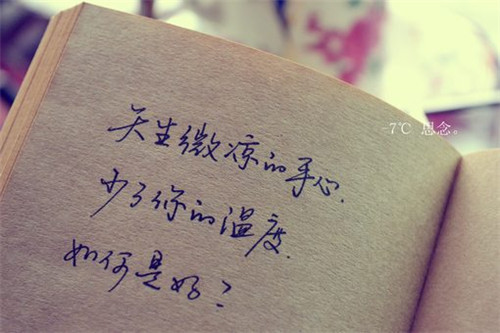 天生微凉的手心.
少了你的温度.
如何是好？
-7℃ 思念。